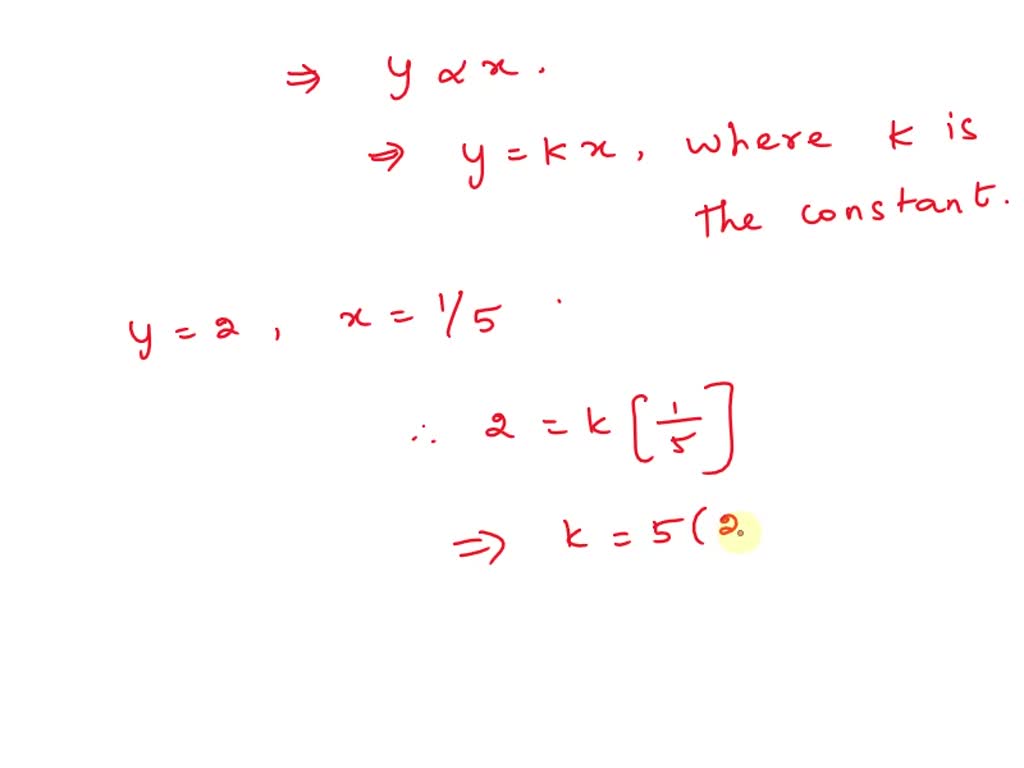 ⇒ y ∝ x .
⇒ y = kx , where k is
the constant.
y = 2 , x = 1/5 .
∴ 2 = k [ 1/5 ]
⇒ k = 5 ( 2